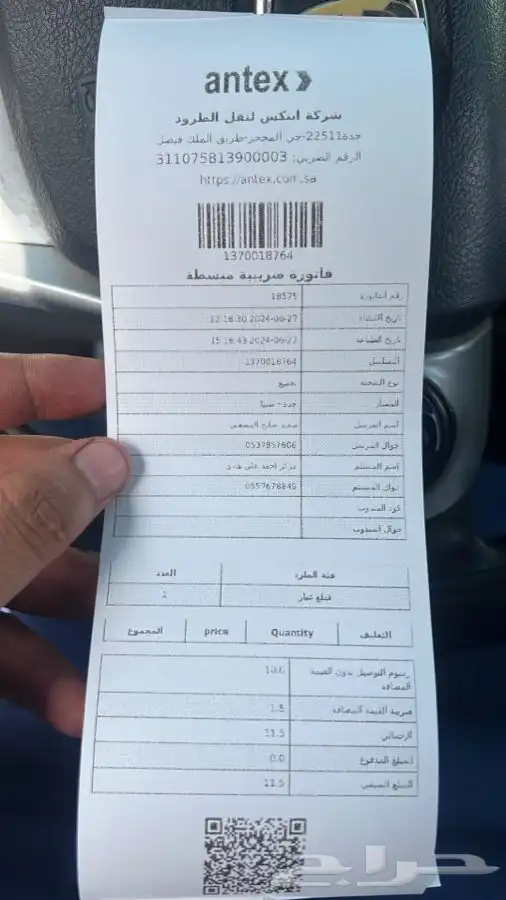 antex
شركة انتكس لنقل الطرود
جدة22511-حي المحجر-طريق الملك فيصل
الرقم الضريبي: 311075813900003
https://antex.com.sa
1370018764
فاتورة ضريبية مبسطة
رقم الفاتورة 18575
تاريخ الانشاء 2024-06-27 12:16:30
تاريخ الطباعة 2024-06-27 15:16:43
التسلسل 1370018764
نوع الشحنة تجميع
المسار جدة - صبيا
اسم المرسل سعيد صالح
جوال المرسل 0537857606
إسم المستلم احمد علي هادي
جوال المستلم 0557678845
كود المندوب
جوال المندوب
فئة الطرد العدد
قطع غيار 1
التغليف Quantity price المجموع
رسوم التوصيل بدون القيمة المضافة 10.0
ضريبة القيمة المضافة 1.5
الإجمالي 11.5
المبلغ المدفوع 0.0
المبلغ المتبقي 11.5
حراج